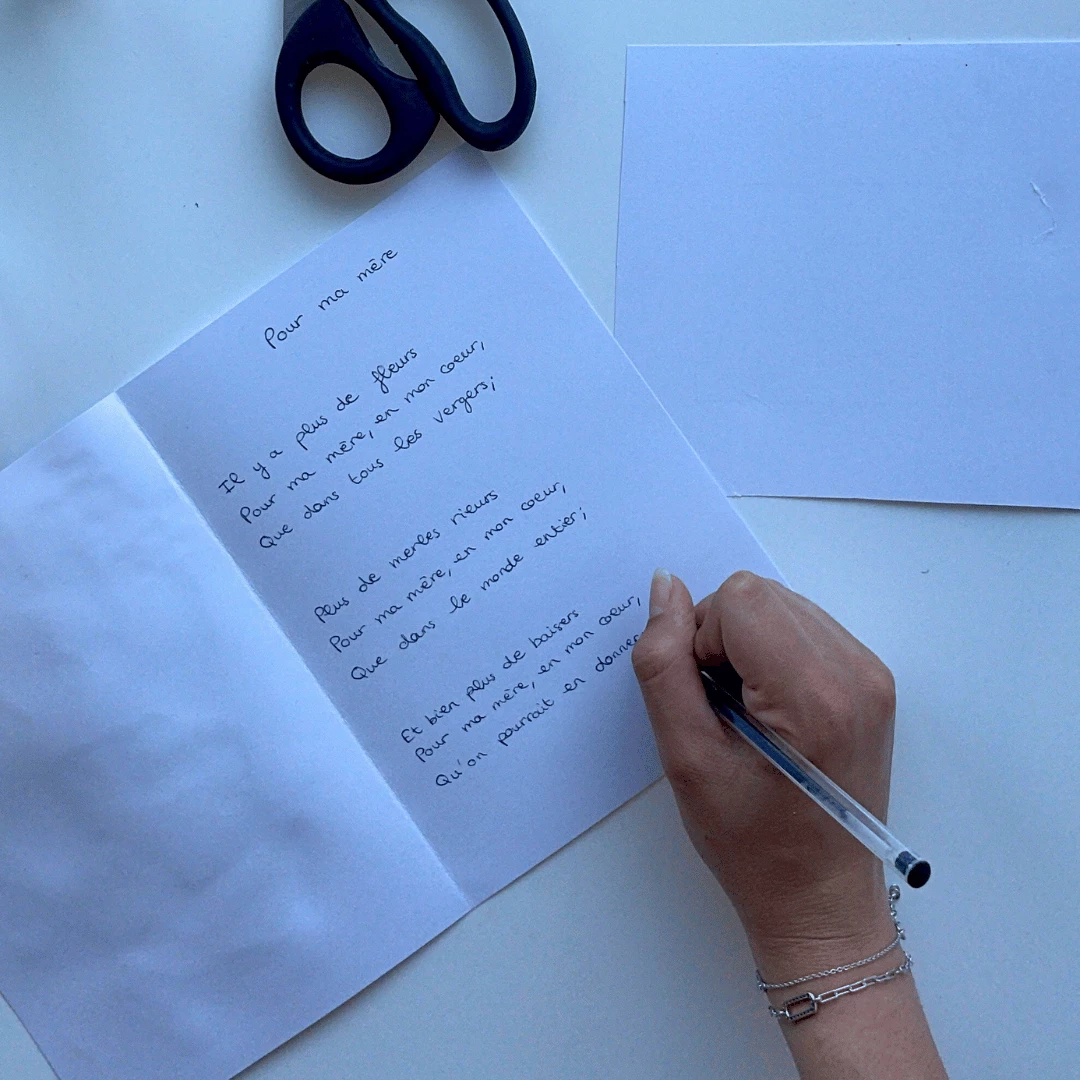 Pour ma mère
Il y a plus de fleurs
Pour ma mère, en mon coeur,
Que dans tous les vergers;
Plus de merles rieurs
Pour ma mère, en mon coeur,
Que dans le monde entier;
Et bien plus de baisers
Pour ma mère, en mon coeur,
Qu'on pourrait en donner